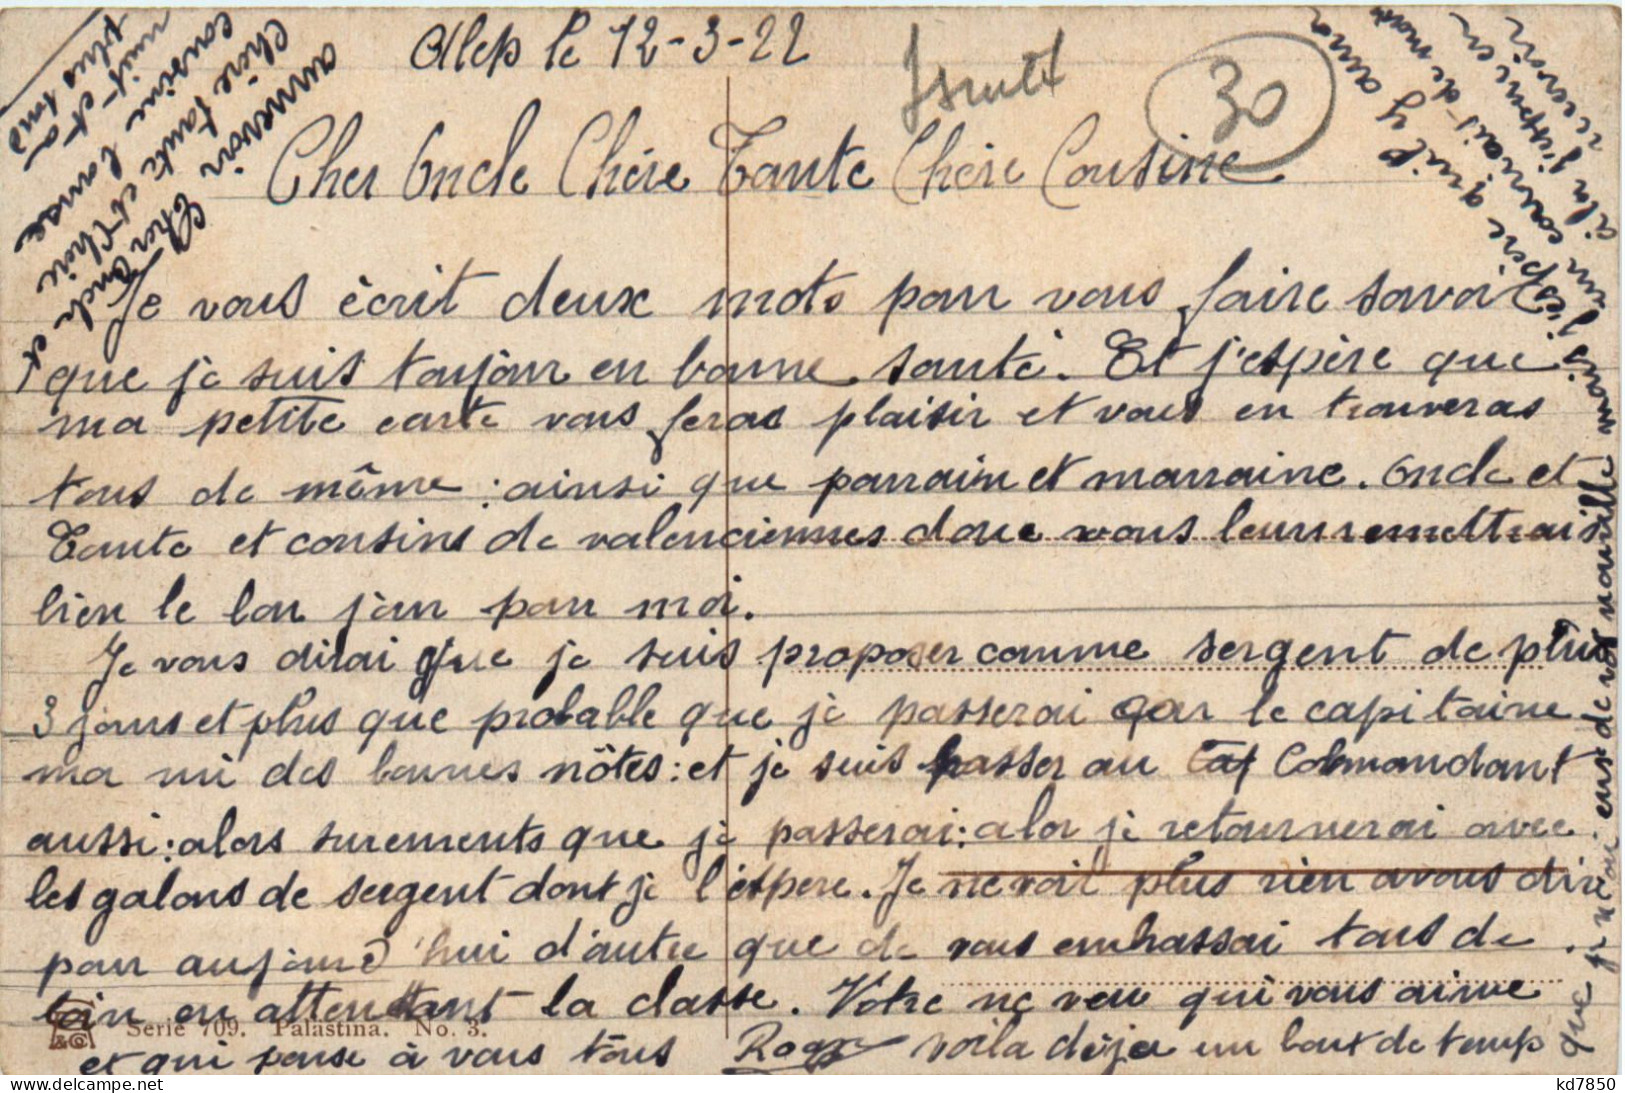 Alep le 12-3-22
30
Cher Oncle Chère Tante Chère Cousine
Je vous écrit deux mots pour vous faire savoir
que je suis toujour en bonne santé. Et j'espère que
ma petite carte vous feras plaisir et vous en trouveras
tous de même : ainsi que parrain et marraine. Oncle et
Tante et cousins de valenciennes donc vous leurs remettrais
bien le bon jour pour moi.
Je vous dirai que je suis proposer comme sergent de plus
3 jours et plus que probable que je passerai car le capitaine
ma mi des bonnes nôtes : et je suis passer au Commandant
aussi : alors surements que je passerai : alor je retournerai avec
les galons de sergent dont je l'espere. Je ne voit plus rien a vous dire
pour aujourd'hui d'autre que de vous embrassai tous de
loin en attendant la classe. Votre neveu qui vous aime
et qui pense à vous tous Roger voila dèja un bout de temp
que je n'ai eus de vos nouvelle mais j'espère qu'il y aura
rien
mais de
j'espère en
à la
recevoir
aurrevoir
Cher Oncle et
Chère tante et Chère
cousine
nuit et a
plus tard
Serie 709. Palästina. No. 3.
& Co
kd7850